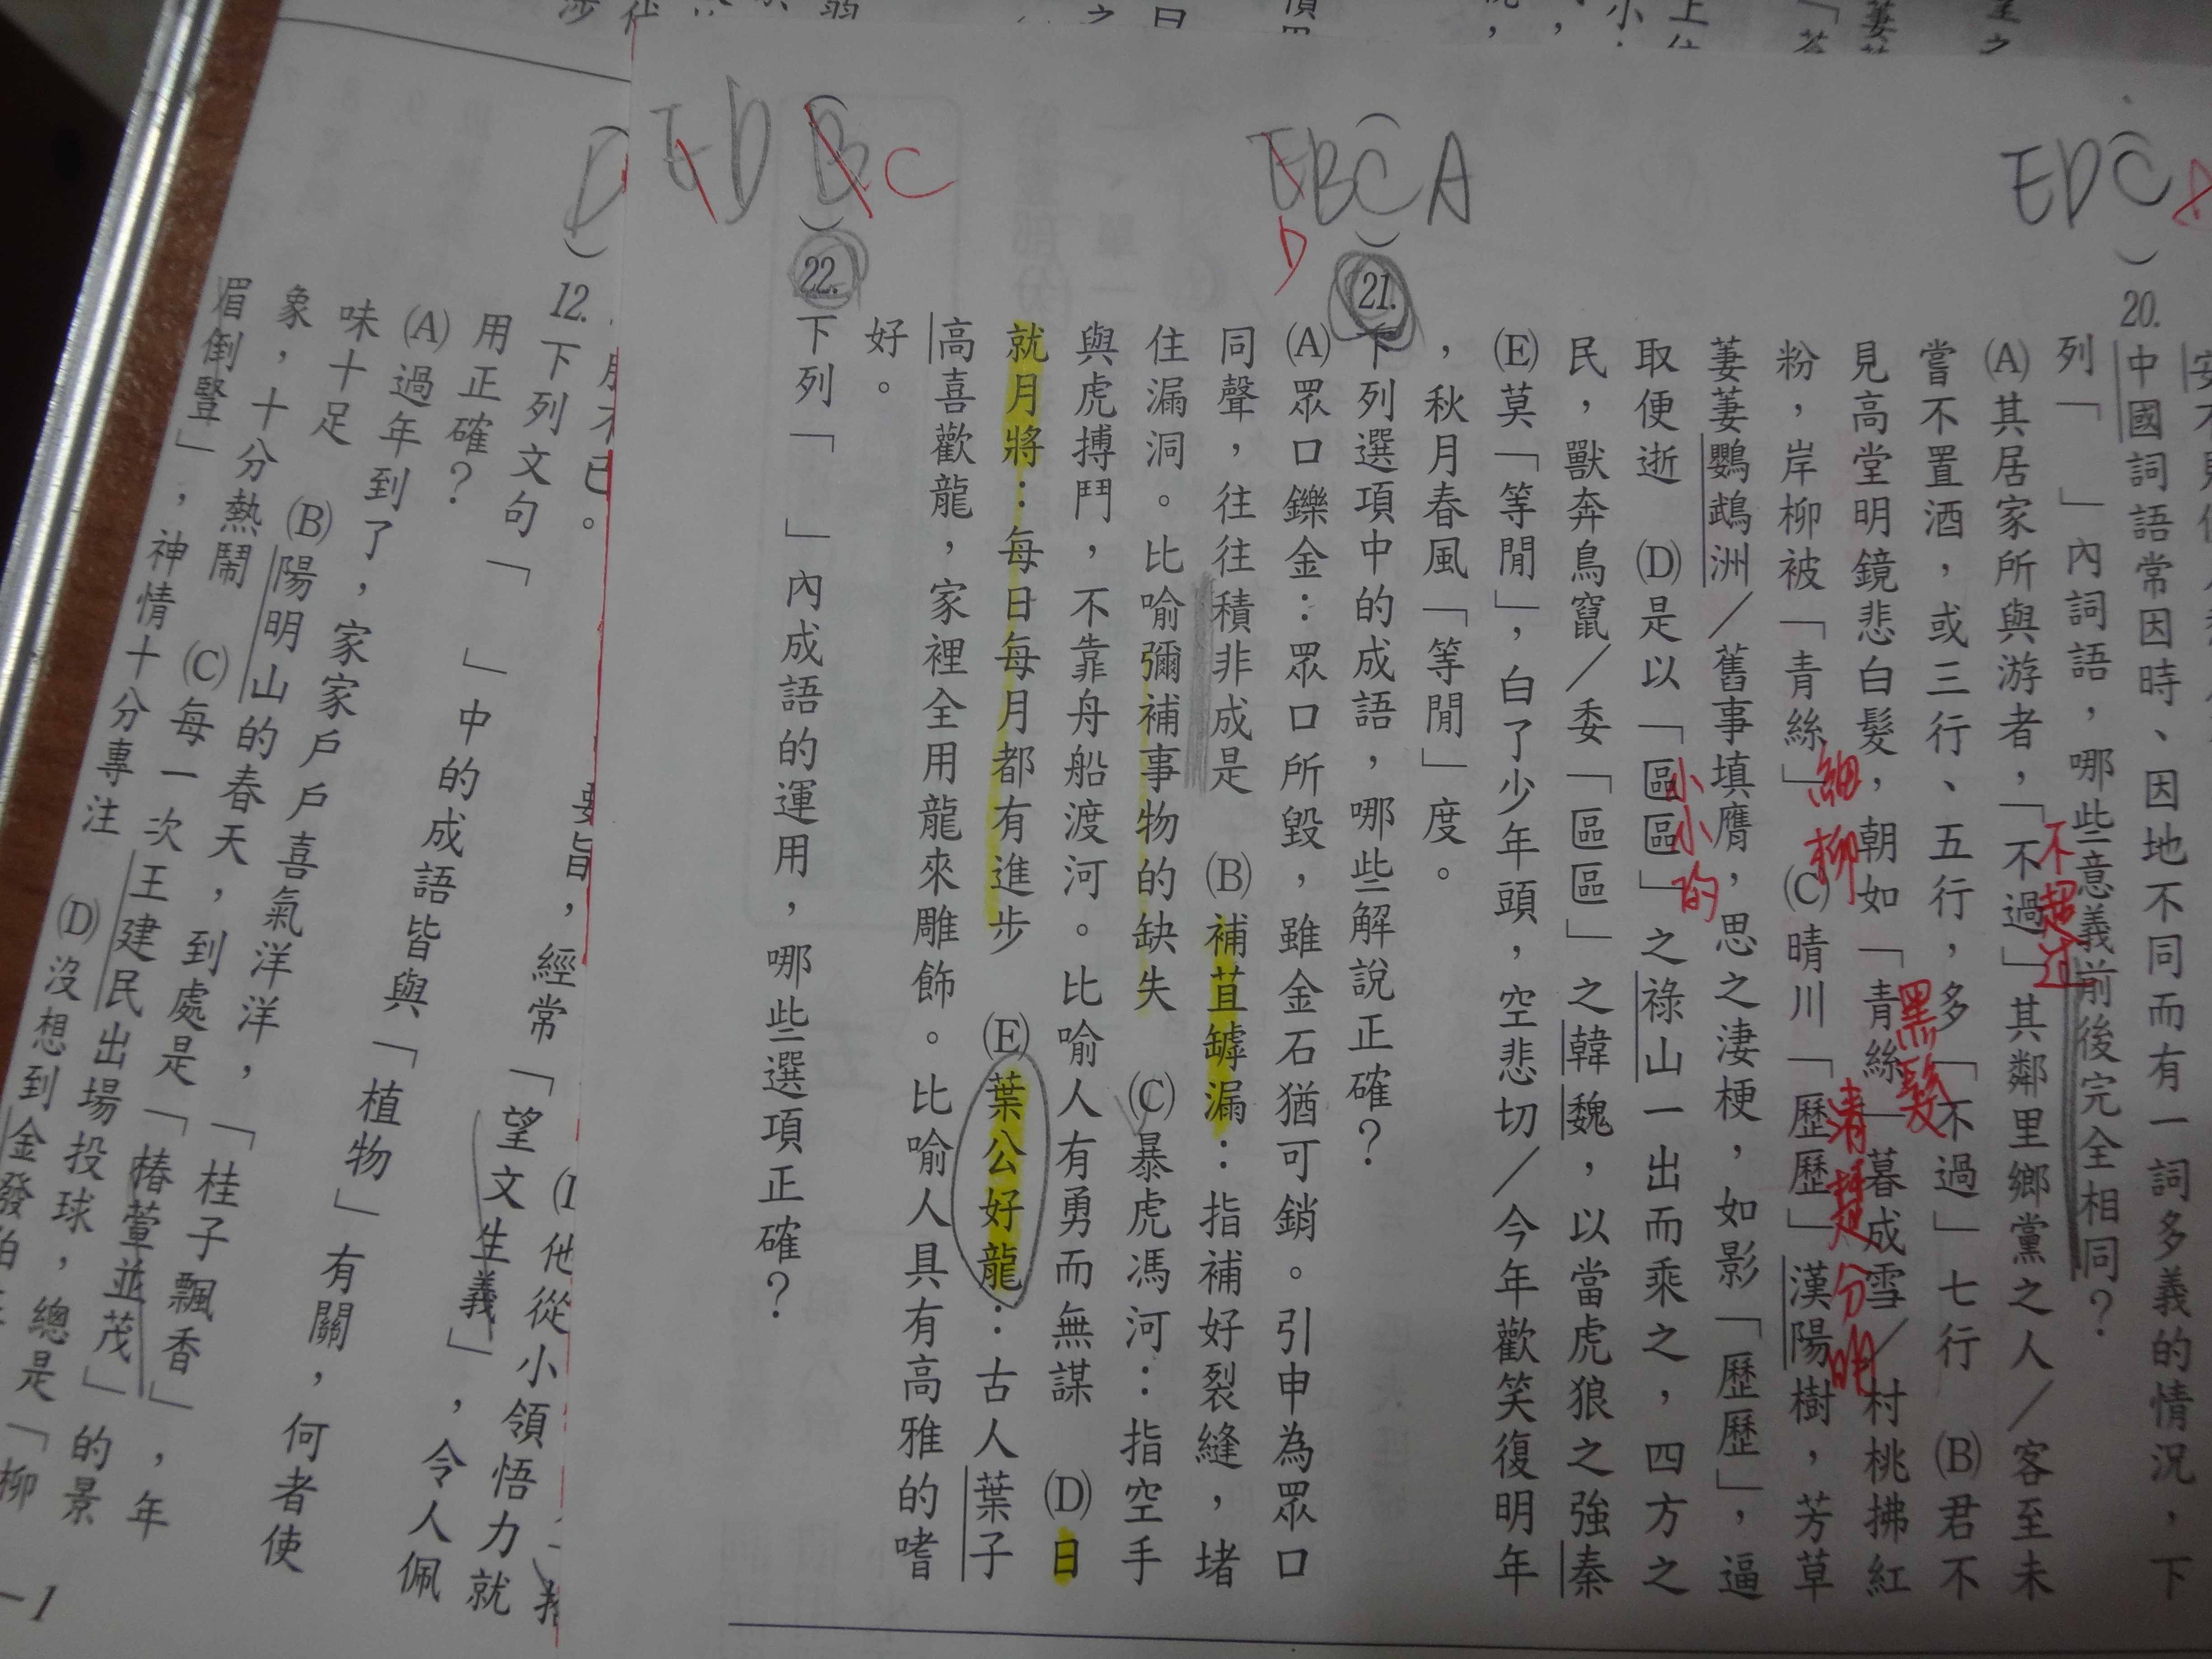 EDC
20.
中國詞語常因時、因地不同而有一詞多義的情況，下
列「　　」內詞語，哪些意義前後完全相同？
(A)其居家所與游者，「不過」其鄰里鄉黨之人／客至未
不超过
嘗不置酒，或三行、五行，多「不過」七行　(B)君不
見高堂明鏡悲白髮，朝如「青絲」暮成雪／村桃拂紅
黑髮
粉，岸柳被「青絲」　(C)晴川「歷歷」漢陽樹，芳草
細柳
清楚分明
萋萋鸚鵡洲／舊事填膺，思之淒梗，如影「歷歷」，逼
取便逝　(D)是以「區區」之祿山一出而乘之，四方之
小小的
民，獸奔鳥竄／委「區區」之韓魏，以當虎狼之強秦
(E)莫「等閒」，白了少年頭，空悲切／今年歡笑復明年
，秋月春風「等閒」度。
EBCA
D
21.
下列選項中的成語，哪些解說正確？
(A)眾口鑠金：眾口所毀，雖金石猶可銷。引申為眾口
同聲，往往積非成是　(B)補苴罅漏：指補好裂縫，堵
住漏洞。比喻彌補事物的缺失　(C)暴虎馮河：指空手
與虎搏鬥，不靠舟船渡河。比喻人有勇而無謀　(D)日
就月將：每日每月都有進步　(E)葉公好龍：古人葉子
高喜歡龍，家裡全用龍來雕飾。比喻人具有高雅的嗜
好。
EDB
C
22.
下列「　　」內成語的運用，哪些選項正確？
要旨，經常「望文生義」，令人佩
他從小領悟力就
D
12.
下列文句「　　」中的成語皆與「植物」有關，何者使
用正確？
(A)過年到了，家家戶戶喜氣洋洋，「桂子飄香」，年
味十足　(B)陽明山的春天，到處是「椿萱並茂」的景
象，十分熱鬧　(C)每一次王建民出場投球，總是「柳
眉倒豎」，神情十分專注　(D)沒想到金發伯
-1